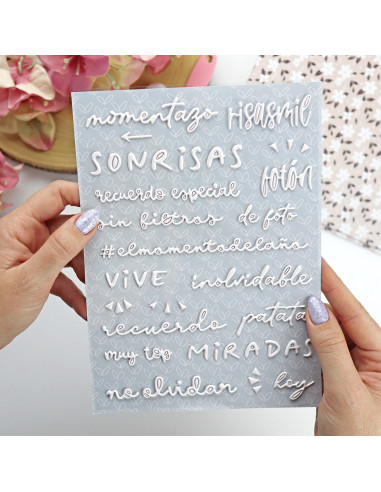 momentazo risasmil
SONRISAS fotón
recuerdo especial
sin filtros de foto
#elmomentodelaño
VIVE inolvidable
recuerdo patata
muy top MIRADAS
no olvidar hoy